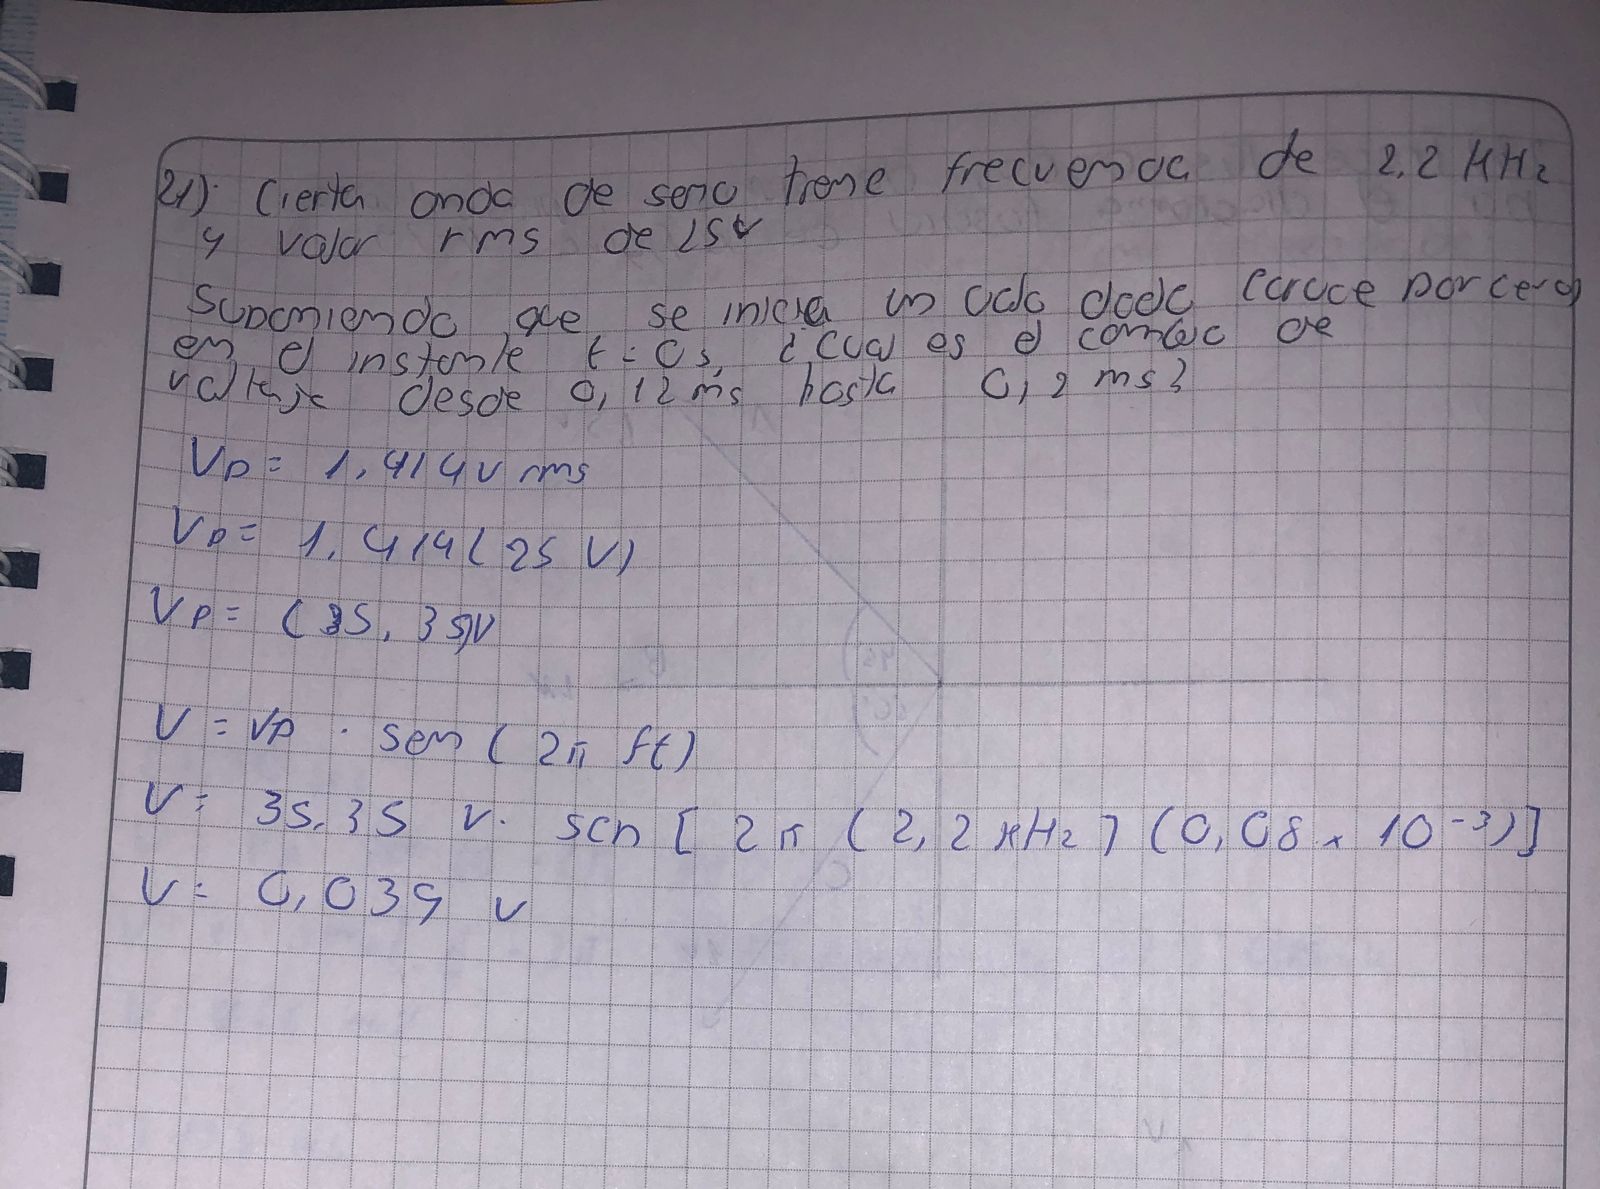 21). Cierta onda de seno tiene frecuencia de 2,2 KHz
y valor rms de 25v
Suponiendo que se inicia un ciclo dado (cruce por cero)
en el instante t=0s, ¿Cual es el cambio de
voltaje desde 0,12ms hasta 0,2 ms?
Vp = 1,414v rms
Vp = 1,414 (25 V)
Vp = (35,35)V
V = Vp . sen (2π ft)
V = 35,35 v. sen [2π (2,2 KHz) (0,08 x 10⁻³)]
V = 0,039 v